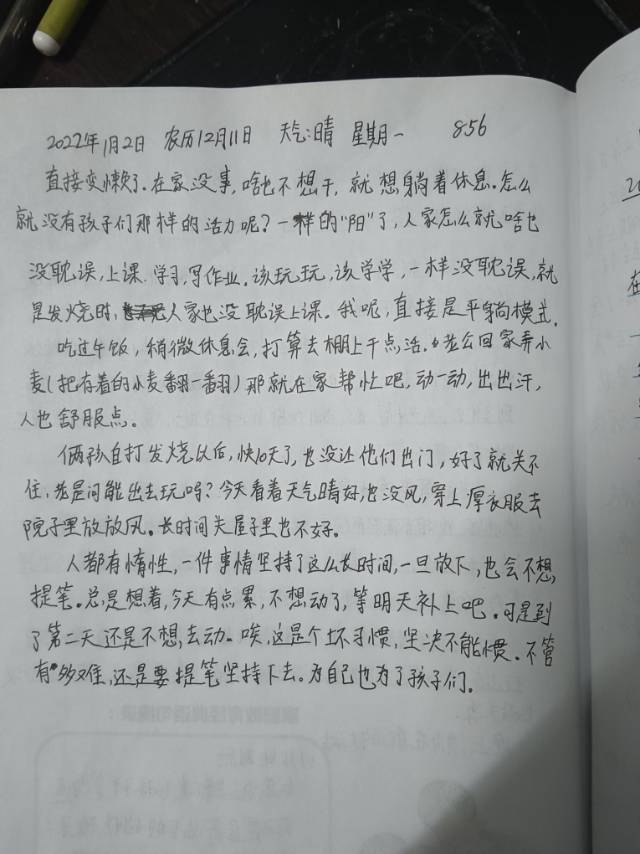 2022年1月2日 农历12月11日 天气:晴 星期一 856
直接变懒了.在家没事,啥也不想干,就想躺着休息.怎么
就没有孩子们那样的活力呢?一样的"阳"了,人家怎么就啥也
没耽误,上课.学习,写作业.该玩玩,该学学,一样没耽误,就
是发烧时,人家也没耽误上课。我呢,直接是平躺模式.
吃过午饭,稍微休息会,打算去棚上干点活.老公回家弄小
麦(把有着的小麦翻一翻)那就在家帮忙吧,动一动,出出汗,
人也舒服点。
俩孩自打发烧以后,快10天了,也没让他们出门,好了就关不
住,老是问能出去玩吗?今天看着天气晴好,也没风,穿上厚衣服去
院子里放放风.长时间关屋子里也不好.
人都有惰性,一件事情坚持了这么长时间,一旦放下,也会不想
提笔.总是想着,今天有点累,不想动了,等明天补上吧.可是到
了第二天还是不想去动.唉,这是个坏习惯,坚决不能惯.不管
有多难,还是要提笔坚持下去.为自己也为了孩子们.